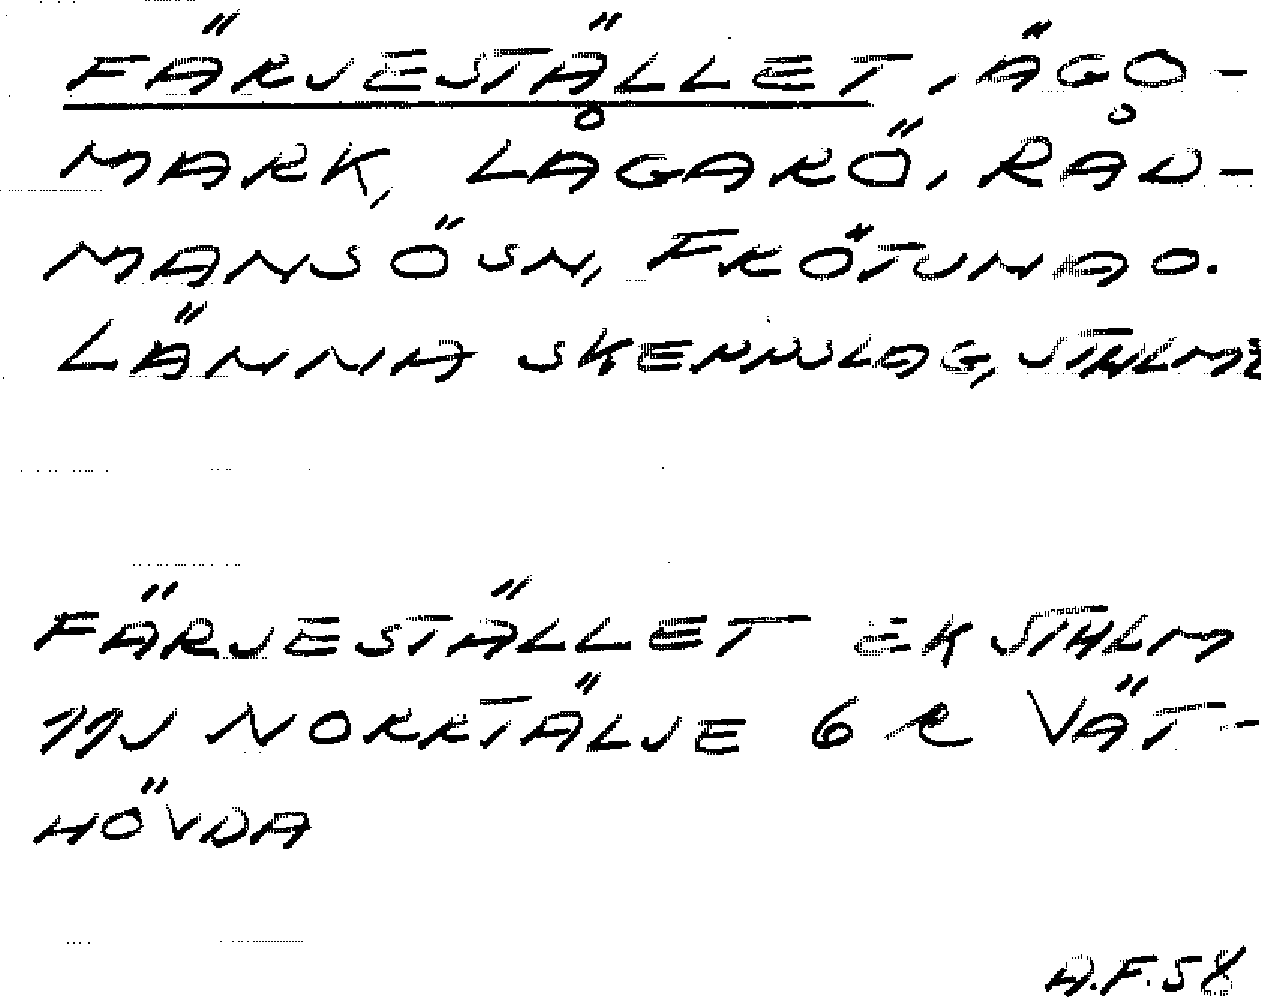 FÄRJESTÄLLET, ÄGO-
MARK, LÅGARÖ, RÅD-
MANSÖ SN, FRÖTUNA O.
LÄNNA SKEPPSLAG, STHLMS
FÄRJESTÄLLET EK STHLM
11J NORRTÄLJE 6 e VÄT-
HÖVDA
A.F. 58